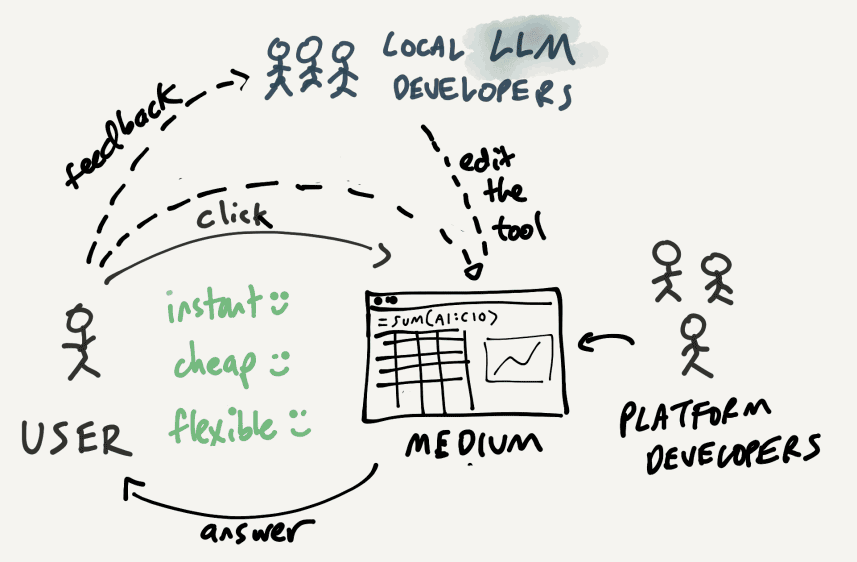 LOCAL LLM
DEVELOPERS
feedback
edit
the
tool
click
instant
cheap
flexible
=SUM(A1:C10)
USER
MEDIUM
PLATFORM
DEVELOPERS
answer